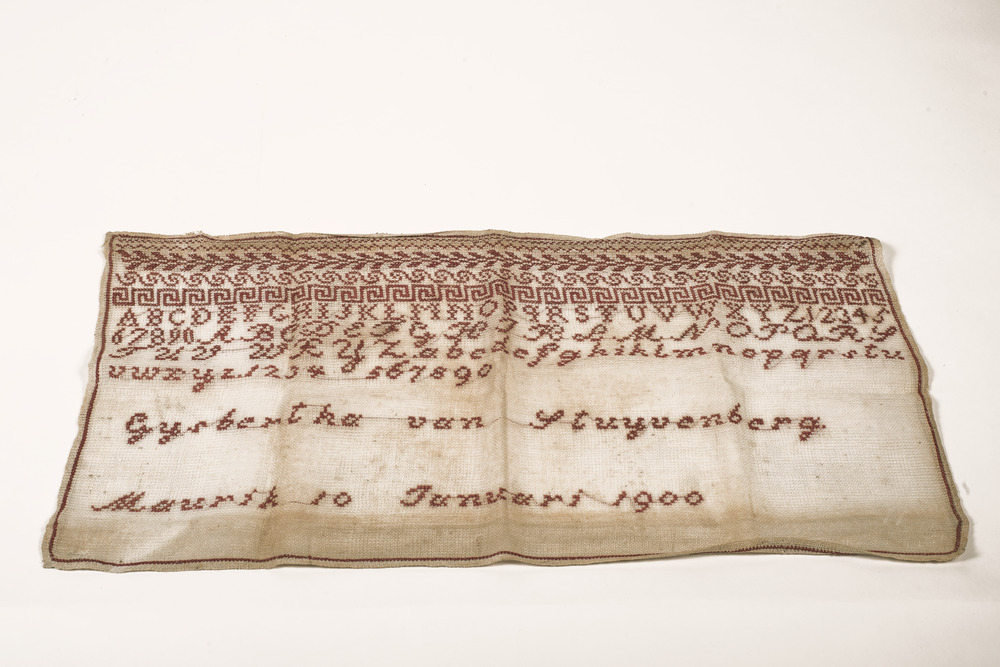 ABCDEFGHIJKLMNOPQRSTUVWXYZ12345
67890 A B C D E F G H I J K L M N O P Q R S
T U V W X Y Z a b c d e f g h i k l m n o p q r s t u
v w x y z 1 2 3 4 5 6 7 8 9 0
Gysbertha van Stuyvenberg
Maurik 10 Januari 1900